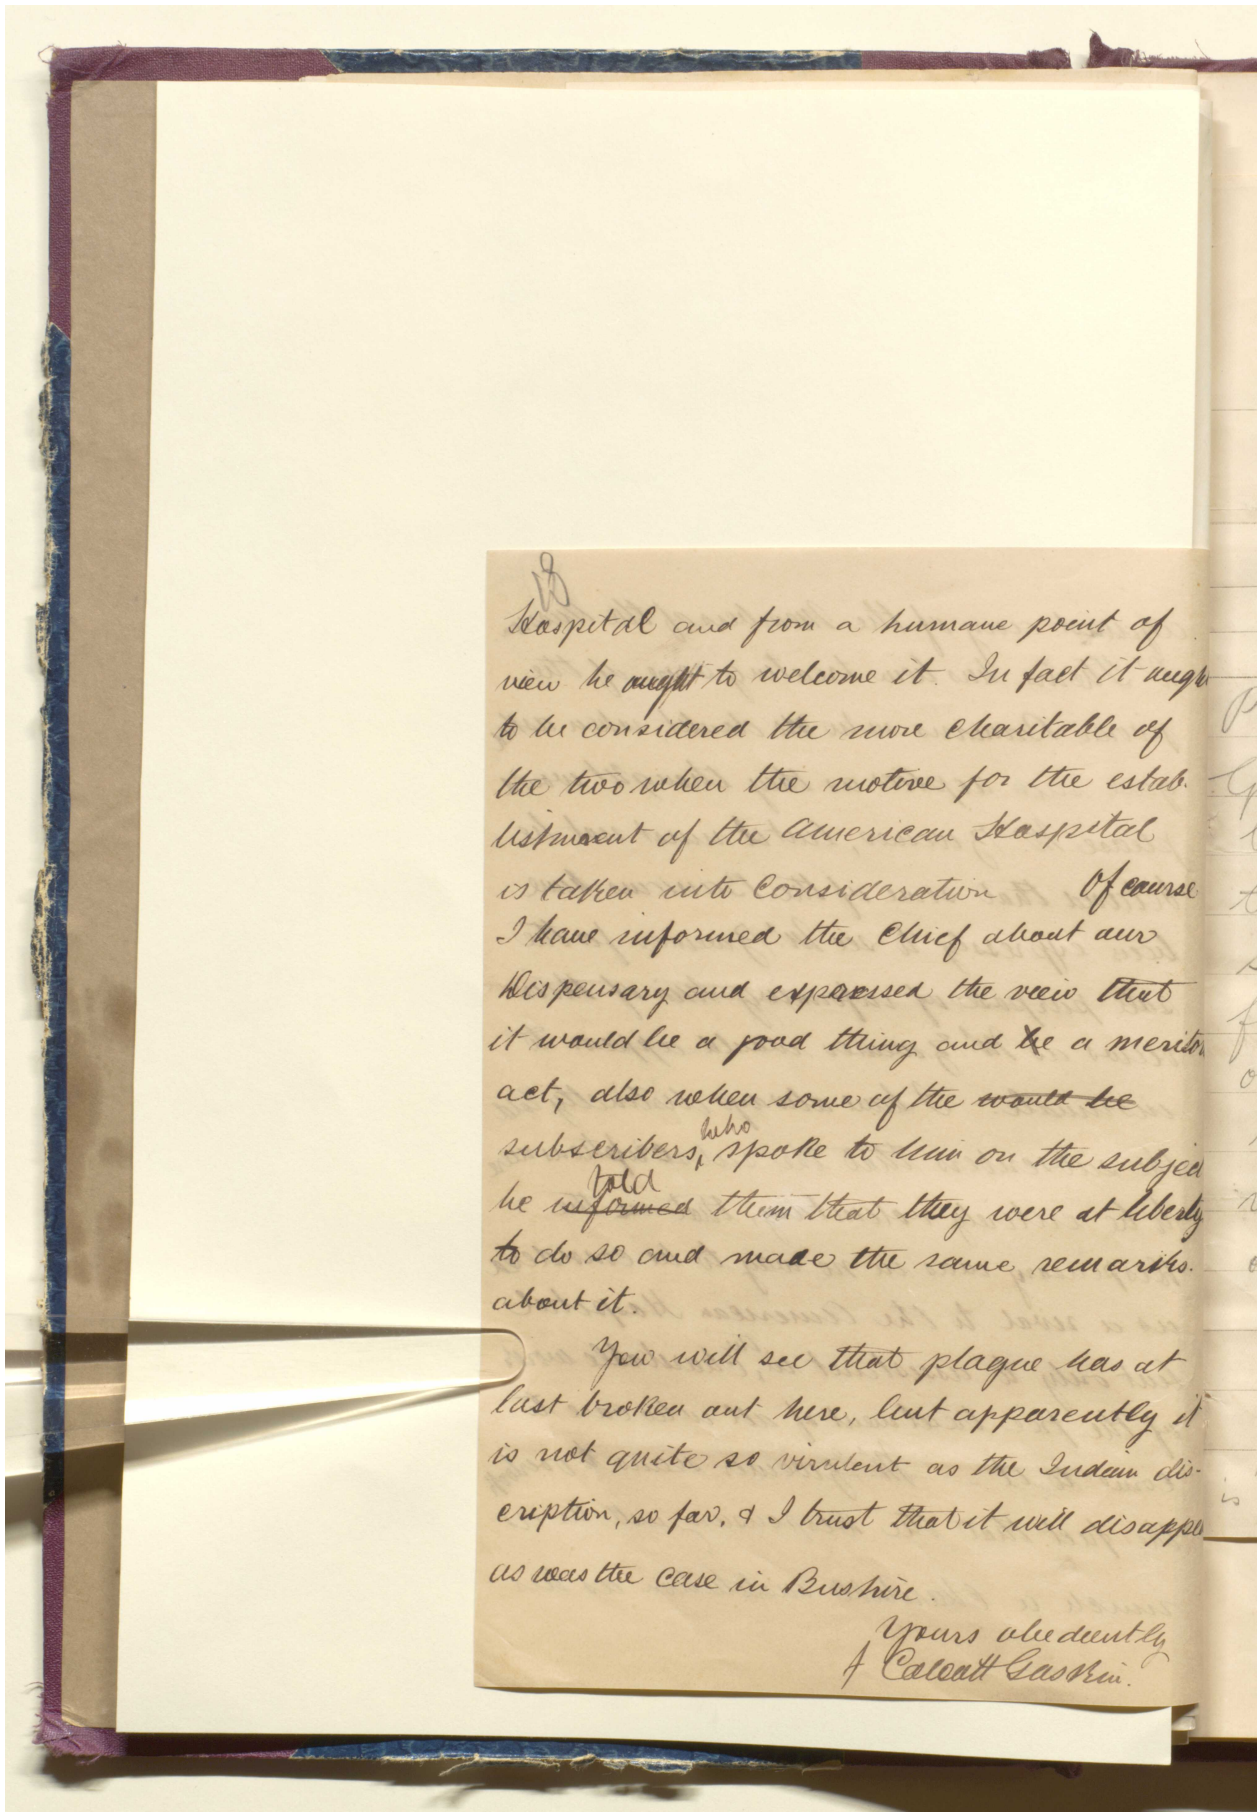 18
Hospital and from a humane point of
view he ought to welcome it. In fact it ough
to be considered the more charitable of
the two when the motive for the estab-
lishment of the American Hospital
is taken into Consideration Of course
I have informed the Chief about our
Dispensary and expressed the view that
it would be a good thing and be a merito
act, also when some of the would be
subscribers, who spoke to him on the subject
he informed told them that they were at liberty
to do so and made the same remarks.
about it.
You will see that plague has at
last broken out here, but apparently it
is not quite so virulent as the Indian dis-
cription, so far, & I trust that it will disappe
as was the case in Bushire.
Yours obediently
J Calcott Gaskin.